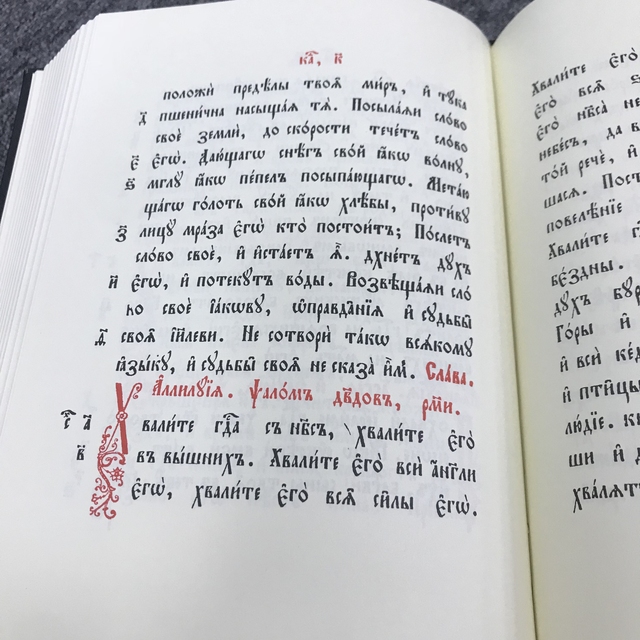 ка҃, к҃
положѝ предѣ́лы твоѧ̑ ми́ръ, и҆ тꙋ́ка
д҃ пшени́чна насыща́ѧ тѧ̀. Посыла́ѧи сло́во
своѐ землѝ, до ско́рости тече́тъ сло́во
є҃ є҆гѡ̀. Даю́щагѡ снѣ́гъ сво́й ꙗ҆́кѡ во́лнꙋ,
ѕ҃ мглꙋ̀ ꙗ҆́кѡ пе́пелъ посыпа́ющагѡ. Мета́ю
щагѡ го́лоть сво́й ꙗ҆́кѡ хлѣ́бы, проти́вꙋ
з҃ лицꙋ̀ мра́за є҆гѡ̀ кто̀ постои́тъ; По́слетъ
сло́во своѐ, и҆ и҆ста́етъ ѧ҆̀. дхне́тъ дꙋ́хъ
и҃ є҆гѡ̀, и҆ потекꙋ́тъ во́ды. Возвѣща́ѧи сло́
во своѐ і҆а́кѡвꙋ, ѡ҆правда̑нїѧ и҆ сꙋдьбы̀
д҃ своѧ̑ і҆и҃леви. Не сотворѝ та́кѡ всѧ́комꙋ
ꙗ҆зы́кꙋ, и҆ сꙋдьбы̀ своѧ̑ не сказа̀ и҆̀мъ. Сла́ва.
А҆ллилꙋ́їѧ. Ѱало́мъ дв҃довъ, рм҃и.
а҃ Хвали́те гд҇а съ нб҃съ, хвали́те є҆го̀
в҃ въ вы́шнихъ. Хвали́те є҆го̀ всѝ а҆́нг҃ли
є҆гѡ̀, хвали́те є҆го̀ всѧ̑ си̑лы є҆гѡ̀.
Хвали́те є҆го̀
є҆го̀ всѧ̑
є҆го̀ нб҃са̀
небе́съ, да
то́й речѐ, и҆
шасѧ.
повелѣ́нїе
Хвали́те
бе́здны.
дꙋ́хъ бꙋ́р
Го́ры и҆
и҆ всѝ ке́д
и҆ пти́цы
лю́дїе.
ши и҆
хва́лѧт